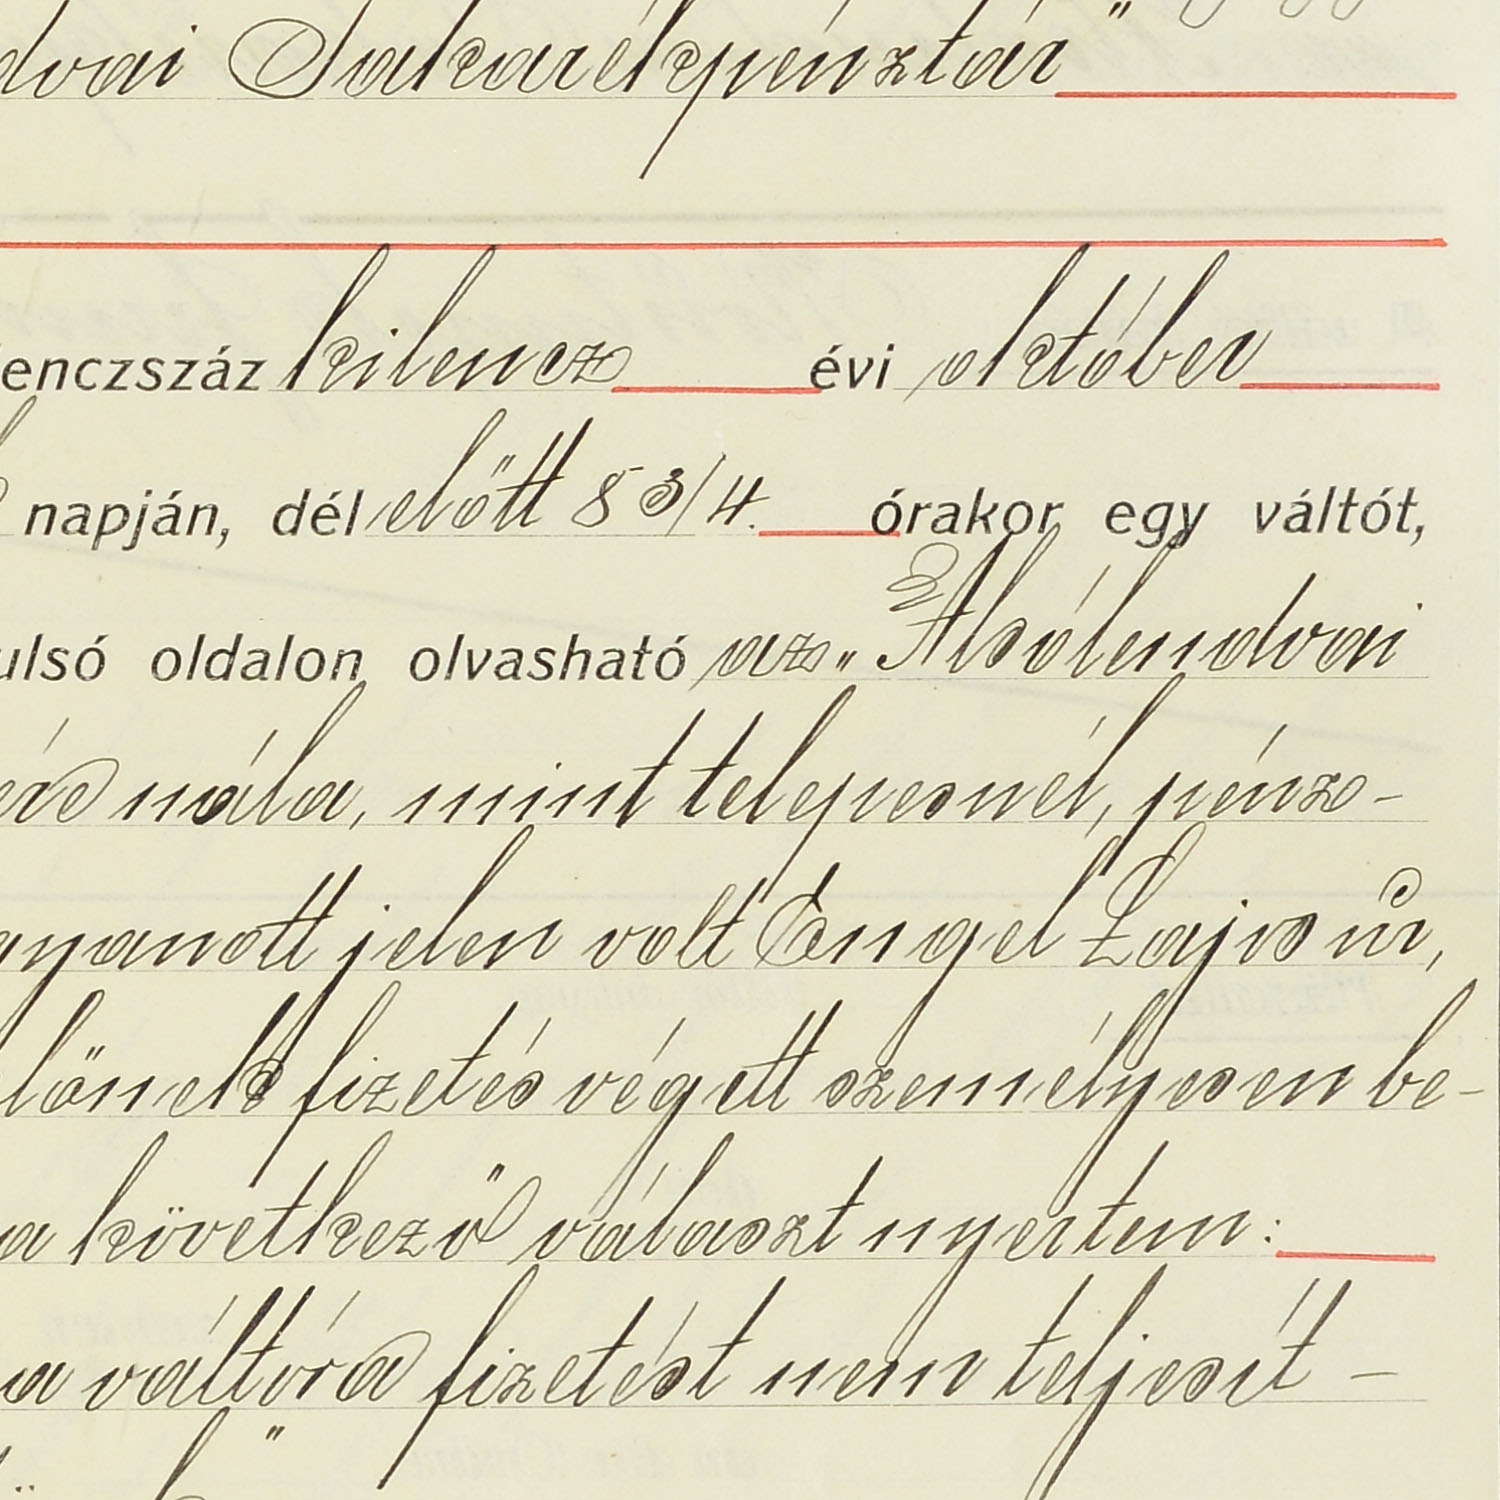 dvai Takarékpénztár"
enczszáz kilencz évi október
napján, dél előtt 8 3/4. órakor egy váltót,
ulsó oldalon olvasható az „Alsólendvai
nála, mint telepesnél, pénz-
jelen volt Engel Lajos úr,
fizetés végett személyesen be-
a következő választ nyertem:
a váltóra fizetést nem teljesít –